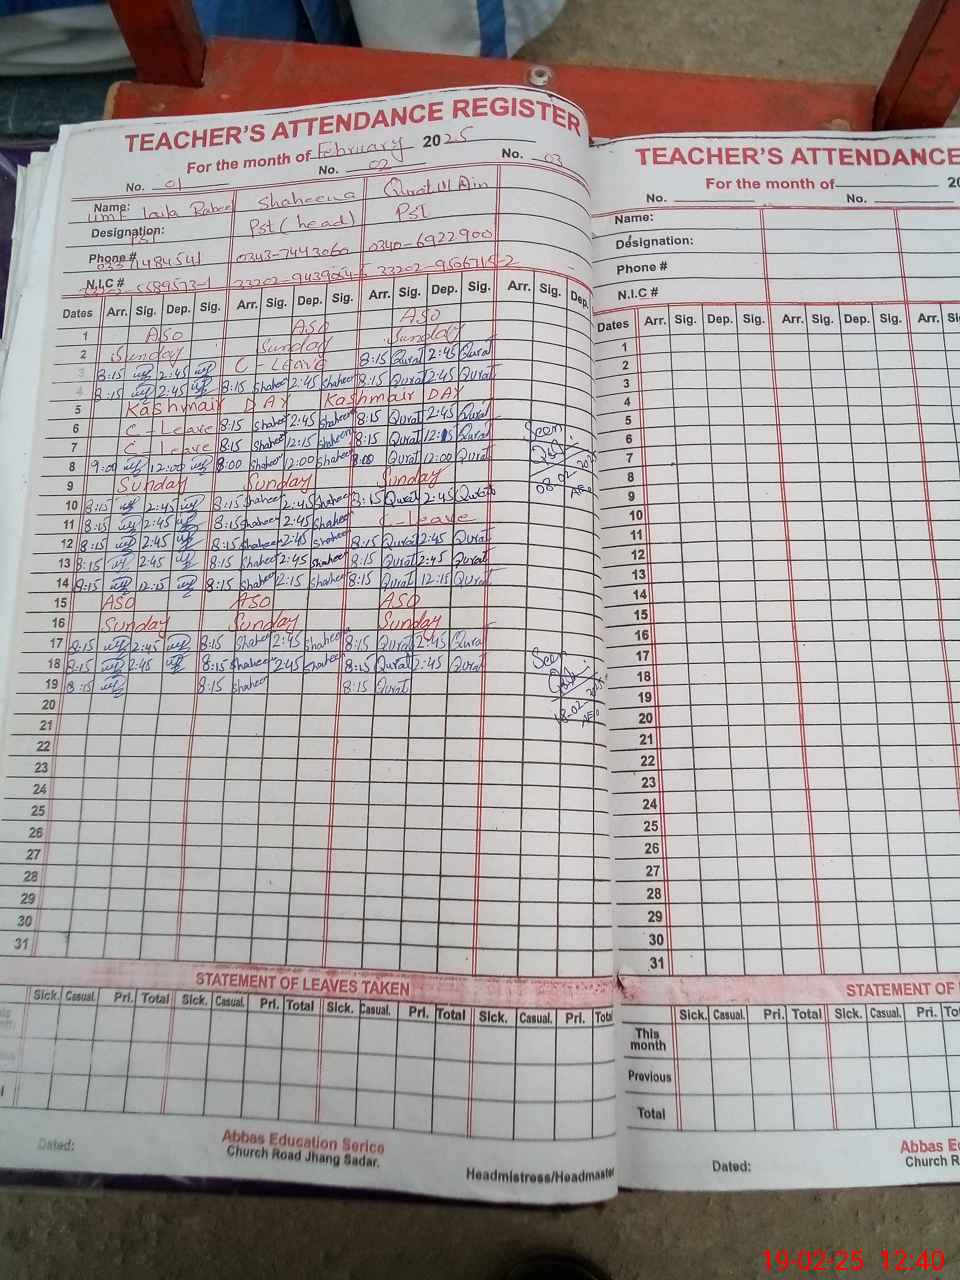 TEACHER'S ATTENDANCE REGISTER
For the month of February 2025
No. 01 No. 02 No. 03
Name: Laila Shaheena Qurat Ul Ain
Designation: Pst Pst (head) Pst
Phone # 1484541 0343-7443060 0340-6922900
N.I.C #
Dates Arr. Sig. Dep. Sig. Arr. Sig. Dep. Sig. Arr. Sig. Dep. Sig. Arr. Sig. Dep.
1 ASO ASO ASO
2 Sunday Sunday Sunday
3 8:15 2:45 C-Leave 8:15 Qurat 2:45 Qurat
4 8:15 2:45 8:15 Shaheen 2:45 Shaheen 8:15 Qurat 2:45 Qurat
5 Kashmair DAY Kashmair DAY
6 C-Leave 8:15 Shaheen 2:45 Shaheen 8:15 Qurat 2:45 Qurat
7 C-Leave 8:15 Shaheen 12:15 Shaheen 8:15 Qurat 12:15 Qurat
8 9:00 12:00 8:00 Shaheen 12:00 Shaheen 8:00 Qurat 12:00 Qurat
Seen
08-02-2025
9 Sunday Sunday Sunday
10 8:15 2:45 8:15 Shaheen 2:45 Shaheen 8:15 Qurat 2:45 Qurat
11 8:15 2:45 8:15 Shaheen 2:45 Shaheen C-leave
12 8:15 2:45 8:15 Shaheen 2:45 Shaheen 8:15 Qurat 2:45 Qurat
13 8:15 2:45 8:15 Shaheen 2:45 Shaheen 8:15 Qurat 2:45 Qurat
14 8:15 12:15 8:15 Shaheen 12:15 Shaheen 8:15 Qurat 12:15 Qurat
15 ASO ASO ASO
16 Sunday Sunday Sunday
17 8:15 2:45 8:15 Shaheen 2:45 Shaheen 8:15 Qurat 2:45 Qurat
18 8:15 2:45 8:15 Shaheen 2:45 Shaheen 8:15 Qurat 2:45 Qurat
19 8:15 8:15 Shaheen 8:15 Qurat
Seen
18-02-2025
AEO
20
21
22
23
24
25
26
27
28
29
30
31
STATEMENT OF LEAVES TAKEN
Sick. Casual. Pri. Total Sick. Casual. Pri. Total Sick. Casual. Pri. Total Sick. Casual. Pri. Total
Dated:
Abbas Education Serice
Church Road Jhang Sadar.
Headmistress/Headmaster
TEACHER'S ATTENDANCE
For the month of 20
No. No.
Name:
Designation:
Phone #
N.I.C #
Dates Arr. Sig. Dep. Sig. Arr. Sig. Dep. Sig. Arr. Sig.
1
2
3
4
5
6
7
8
9
10
11
12
13
14
15
16
17
18
19
20
21
22
23
24
25
26
27
28
29
30
31
STATEMENT OF
Sick. Casual. Pri. Total Sick. Casual. Pri.
This
month
Previous
Total
Dated:
Abbas
Church
19-02-25 12:40